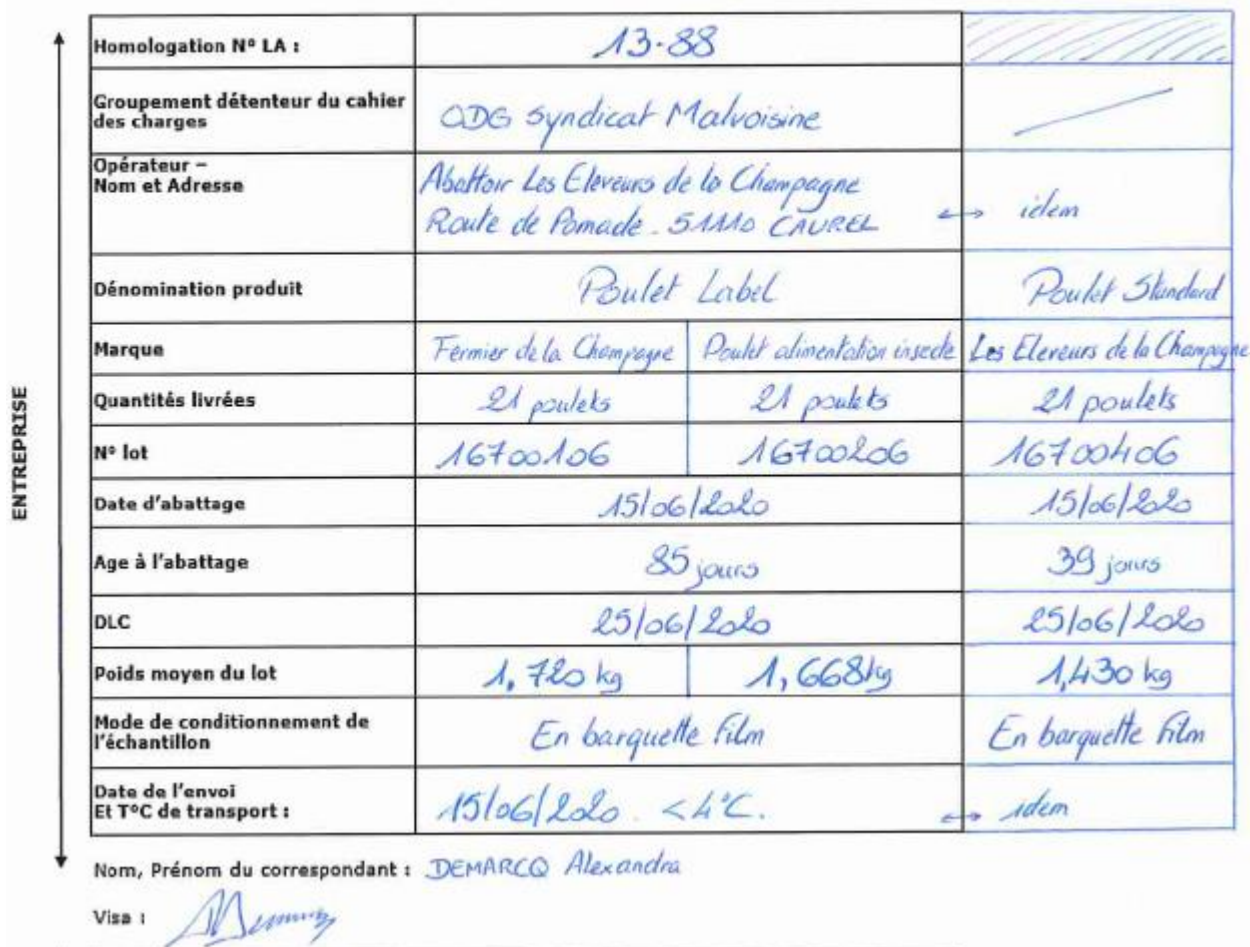 Homologation N° LA : 13.88
Groupement détenteur du cahier
des charges
ODG Syndicat Malvoisine
Opérateur –
Nom et Adresse
Abattoir Les Eleveurs de la Champagne
Route de Pomacle. 51110 CAUREL ↔ idem
Dénomination produit Poulet Label Poulet Standard
Marque Fermier de la Champagne Poulet alimentation insecte Les Eleveurs de la Champagne
Quantités livrées 21 poulets 21 poulets 21 poulets
N° lot 16700106 16700206 16700406
Date d'abattage 15/06/2020 15/06/2020
Age à l'abattage 85 jours 39 jours
DLC 25/06/2020 25/06/2020
Poids moyen du lot 1,720 kg 1,668kg 1,430 kg
Mode de conditionnement de
l'échantillon
En barquette film En barquette film
Date de l'envoi
Et T°C de transport :
15/06/2020. <4°C. ↔ idem
ENTREPRISE
Nom, Prénom du correspondant : DEMARCQ Alexandra
Visa :